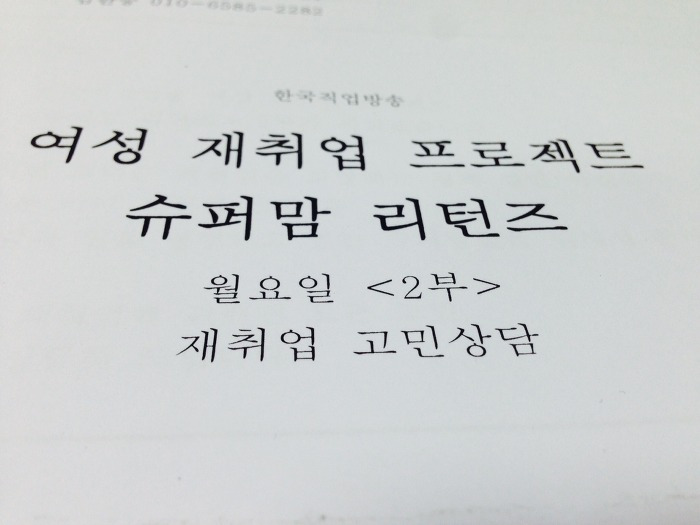 010-6585-2282
한국직업방송
여성 재취업 프로젝트
슈퍼맘 리턴즈
월요일 <2부>
재취업 고민상담